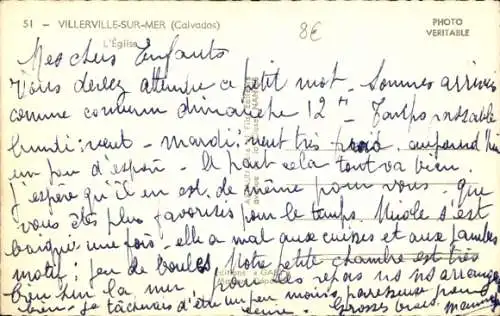 51 - VILLERVILLE-SUR-MER (Calvados)
L'Église
8€
PHOTO
VÉRITABLE
Mes chers Enfants
Vous devez attendre ce petit mot. Sommes arrivés
comme convenu dimanche 12h Temps passable
lundi: vent - mardi: vent très froid, aujourd'hui
un peu d'espoir - A part cela tout va bien.
J'espère qu'il en est de même pour vous. que
vous êtes plus favorisés pour le temps. Nicole s'est
baignée une fois - elle a mal aux cuisses et aux jambes
motif: jeu de boules. Notre petite chambre est très
bien sur la mer, pour les repas ns ns arrangeons
bien. Je tâcherais d'être un peu moins paresseuse pour
écrire. Grosses bises. Maman